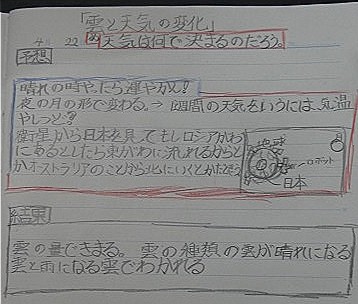 「雲と天気の変化」
4 22 天気は何で決まるのだろう。
予想
晴れの時やったら運やかん！
夜の月の形で変わる。→ 1週間の天気をいうには、気温
やしっと？
衛星から日本を見てもしロシアがわ
にあるとしたら東がわに流れるからと
かオーストラリアのことから北にいくとかだそう
地球
ロボット
日本
結果
雲の量できまる。雲の種類の雲が晴れになる
雲と雨になる雲でわかれる